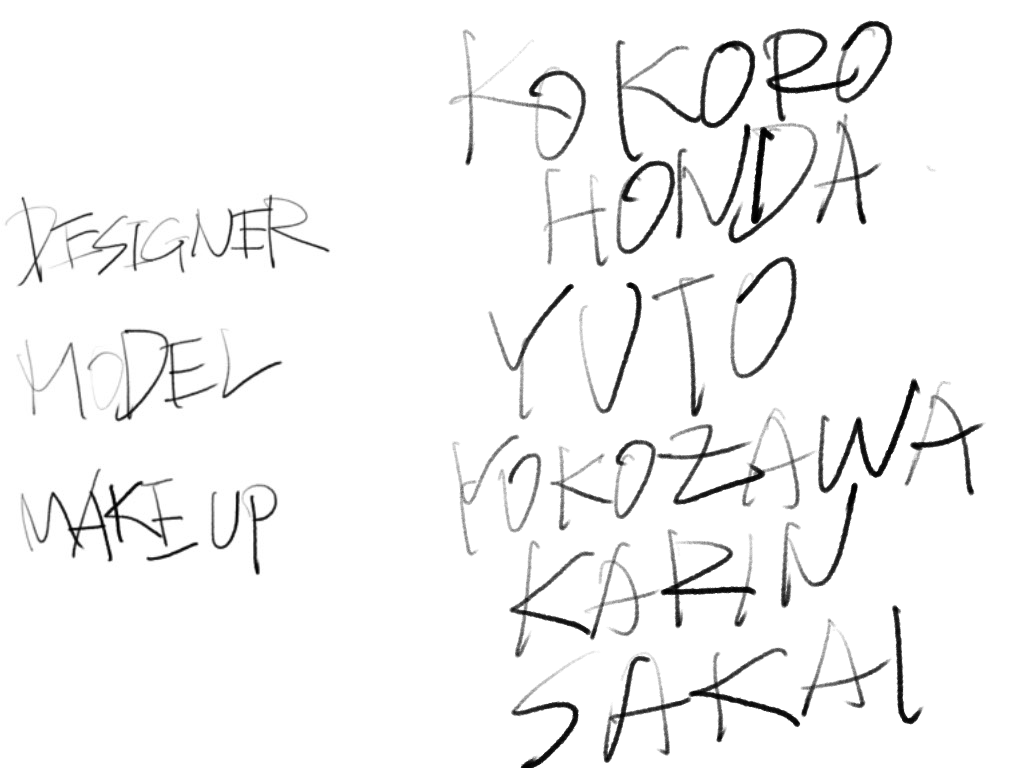 DESIGNER
MODEL
MAKE UP
KOKORO
HONDA
YUTO
YOKOZAWA
KARIN
SAKAI